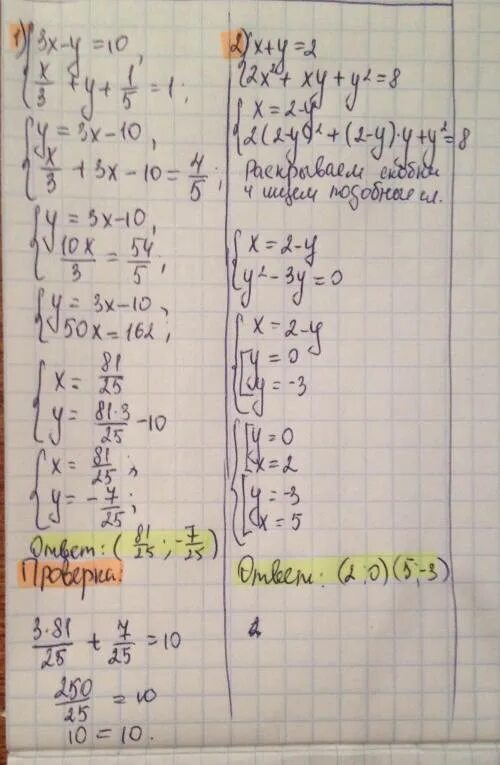 1) { 3x-y=10,
x/3 + y + 1/5 = 1;
{ y=3x-10,
x/3 + 3x-10 = 4/5;
{ y=3x-10,
10x/3 = 54/5;
{ y=3x-10,
50x=162;
{ x = 81/25
y = 81·3/25 -10
{ x = 81/25;
y = -7/25;
Ответ: (81/25; -7/25)
Проверка:
3·81/25 + 7/25 = 10
250/25 = 10
10 = 10.
2) { x+y=2
2x²+ xy+y²=8
{ x = 2-y
2(2-y)²+(2-y)·y+y²=8
Раскрываем скобки
и ищем подобные сл.
{ x = 2-y
y²-3y=0
{ x = 2-y
[ y = 0
y = -3
{ [ y = 0
x = 2
[ y = -3
x = 5
Ответ: (2;0)(5;-3)
2